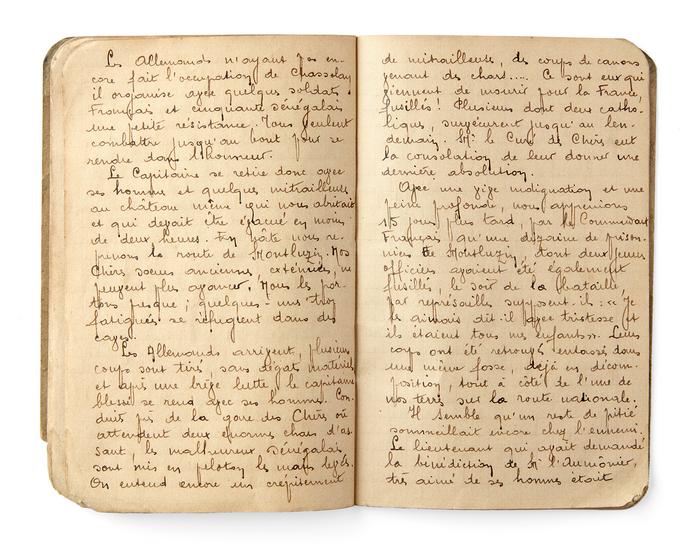 Les Allemands n'ayant pas en-
core fait l'occupation de Chasselay
il organise avec quelques soldats
Français et cinquante sénégalais
une petite résistance. Tous veulent
combattre jusqu'au bout pour se
rendre dans l'honneur.
Le Capitaine se retire donc avec
ses hommes et quelques mitrailleuses
au château même qui nous abritait
et qui devait être évacué en moins
de deux heures. En hâte nous re-
prenons la route de Montluzin. Nos
Chères soeurs anciennes, exténuées, ne
peuvent plus avancer. Nous les por-
tons presque ; quelques-unes trop
fatiguées se réfugient dans des
caves.
Les Allemands arrivent, plusieurs
coups sont tirés, sans dégats matériels
et après une brève lutte le capitaine
blessé se rend avec ses hommes. Con-
duits près de la gare des Chères où
attendent deux énormes chars d'as-
saut, les malheureux sénégalais
sont mis en peloton les mains levées.
On entend encore un crépitement
de mitrailleuses, des coups de canons
venant des chars.... Ce sont eux qui
viennent de mourir pour la France,
fusillés ! Plusieurs dont deux catho-
liques, survécurent jusqu'au len-
demain. Mr le Curé des Chères eut
la consolation de leur donner une
dernière absolution.
Avec une vive indignation et une
peine profonde, nous apprenions
15 jours plus tard, par le Commandant
Français qu'une dizaine de prison-
niers de Montluzin, dont deux jeunes
officiers avaient été également
fusillés, le soir de la bataille,
par représailles suppose-t-il : « Je
les aimais dit-il avec tristesse et
ils étaient tous mes enfants ». Leurs
corps ont été retrouvés entassés dans
une même fosse, déjà en décom-
position, tout à côté de l'une de
nos terres sur la route nationale.
Il semble qu'un reste de pitié
sommeillait encore chez l'ennemi.
Le lieutenant qui avait demandé
la bénédiction de Mr l'Aumônier,
très aimé de ses hommes était